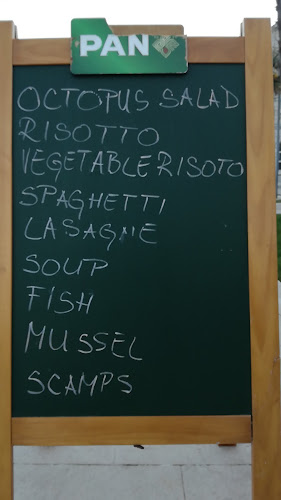 PAN
OCTOPUS SALAD
RISOTTO
VEGETABLE RISOTO
SPAGHETTI
LASAGNE
SOUP
FISH
MUSSEL
SCAMPS